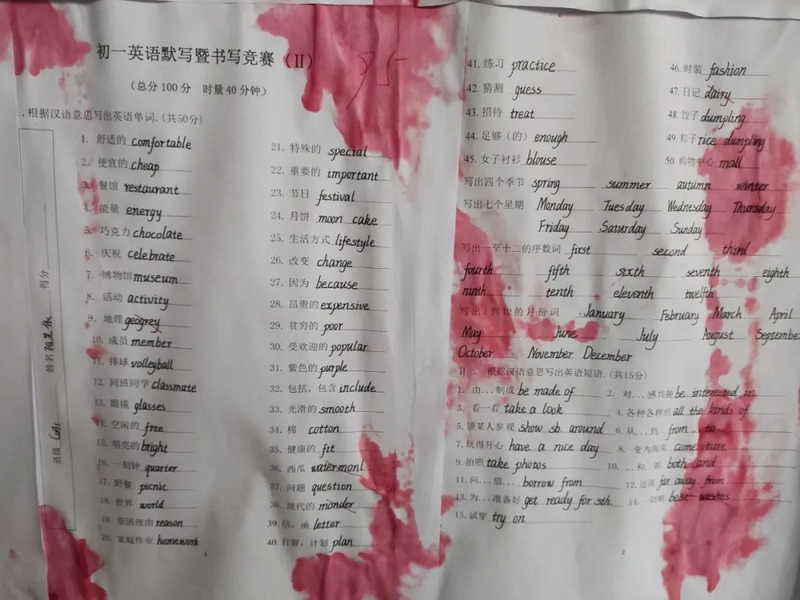 初一英语默写暨书写竞赛（II）
95
（总分100分 时量40分钟）
.根据汉语意思写出英语单词.(共50分)
1. 舒适的 comfortable
2. 便宜的 cheap
3. 餐馆 restaurant
4. 能量 energy
5. 巧克力 chocolate
6. 庆祝 celebrate
7. 博物馆 museum
8. 活动 activity
9. 地理 geogrey
10. 成员 member
11. 排球 volleyball
12. 同班同学 classmate
13. 眼镜 glasses
14. 空闲的 free
15. 明亮的 bright
16. 一刻钟 quarter
17. 野餐 picnic
18. 世界 world
19. 原因理由 reason
20. 家庭作业 homework
21. 特殊的 special
22. 重要的 important
23. 节日 festival
24. 月饼 moon cake
25. 生活方式 lifestyle
26. 改变 change
27. 因为 because
28. 昂贵的 expensive
29. 贫穷的 poor
30. 受欢迎的 popular
31. 紫色的 purple
32. 包括，包含 include
33. 光滑的 smooth
34. 棉 cotton
35. 健康的 fit
36. 西瓜 watermonl
37. 问题 question
38. 现代的 monder
39. 信，函 letter
40. 打算，计划 plan
得分
姓名
班级
41. 练习 practice
42. 猜测 guess
43. 招待 treat
44. 足够（的）enough
45. 女子衬衫 blouse
46. 时装 fashion
47. 日记 dairy
48. 饺子 dumpling
49. 粽子 rice dumpling
50. 购物中心 mall
写出四个季节 spring summer autumn winter
写出七个星期 Monday Tuesday Wednesday Thursday
Friday Saturday Sunday
写出一至十二的序数词 first second third
fourth fifth sixth seventh eighth
ninth tenth eleventh twelfth
写出1到12的月份词 January February March April
May June July August September
October November December
II . 根据汉语意思写出英语短语.（共15分）
1. 由…制成 be made of 2. 对…感兴趣 be interested in
3. 看一看 take a look 4. 各种各样的 all the kinds of
5. 领某人参观 show sb. around 6. 从…到 from to
7. 玩得开心 have a nice day 8. 变为现实 come ture
9. 拍照 take photos 10. …和…都 both and
11. 向…借… borrow from 12. 远离 far away from
13. 为…准备好 get ready for sth. 14. best washes
15. 试穿 try on
2